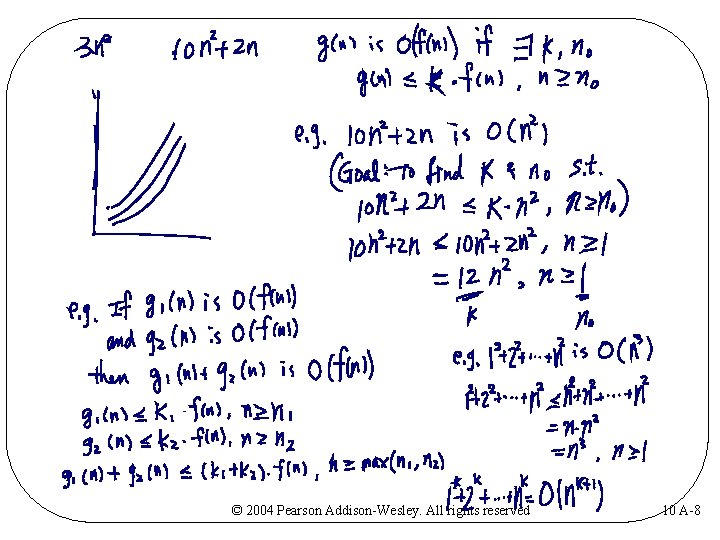 3n² 10n²+2n
g(n) is O(f(n)) if ∃ k, n₀
g(n) ≤ k·f(n), n ≥ n₀
e.g. 10n²+2n is O(n²)
(Goal: To find k & n₀ s.t.
10n²+2n ≤ k·n², n≥n₀)
10n²+2n ≤ 10n²+2n², n≥1
= 12 n², n ≥ 1
k n₀
e.g. If g₁(n) is O(f(n))
and g₂(n) is O(f(n))
then g₁(n)+g₂(n) is O(f(n))
g₁(n) ≤ k₁·f(n), n≥n₁
g₂(n) ≤ k₂·f(n), n≥n₂
g₁(n)+g₂(n) ≤ (k₁+k₂)·f(n), n ≥ max(n₁,n₂)
e.g. 1²+2²+···+n² is O(n³)
1²+2²+···+n² ≤ n²+n²+···+n²
= n·n²
= n³, n≥1
1ᵏ+2ᵏ+···+nᵏ = O(nᵏ⁺¹)
© 2004 Pearson Addison-Wesley. All rights reserved
10 A-8